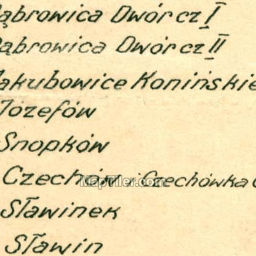 Dąbrowica Dwór cz I
Dąbrowica Dwór cz II
Jakubowice Konińskie
Józefów
Snopków
Czechów i Czechówka
Sławinek
Sławin